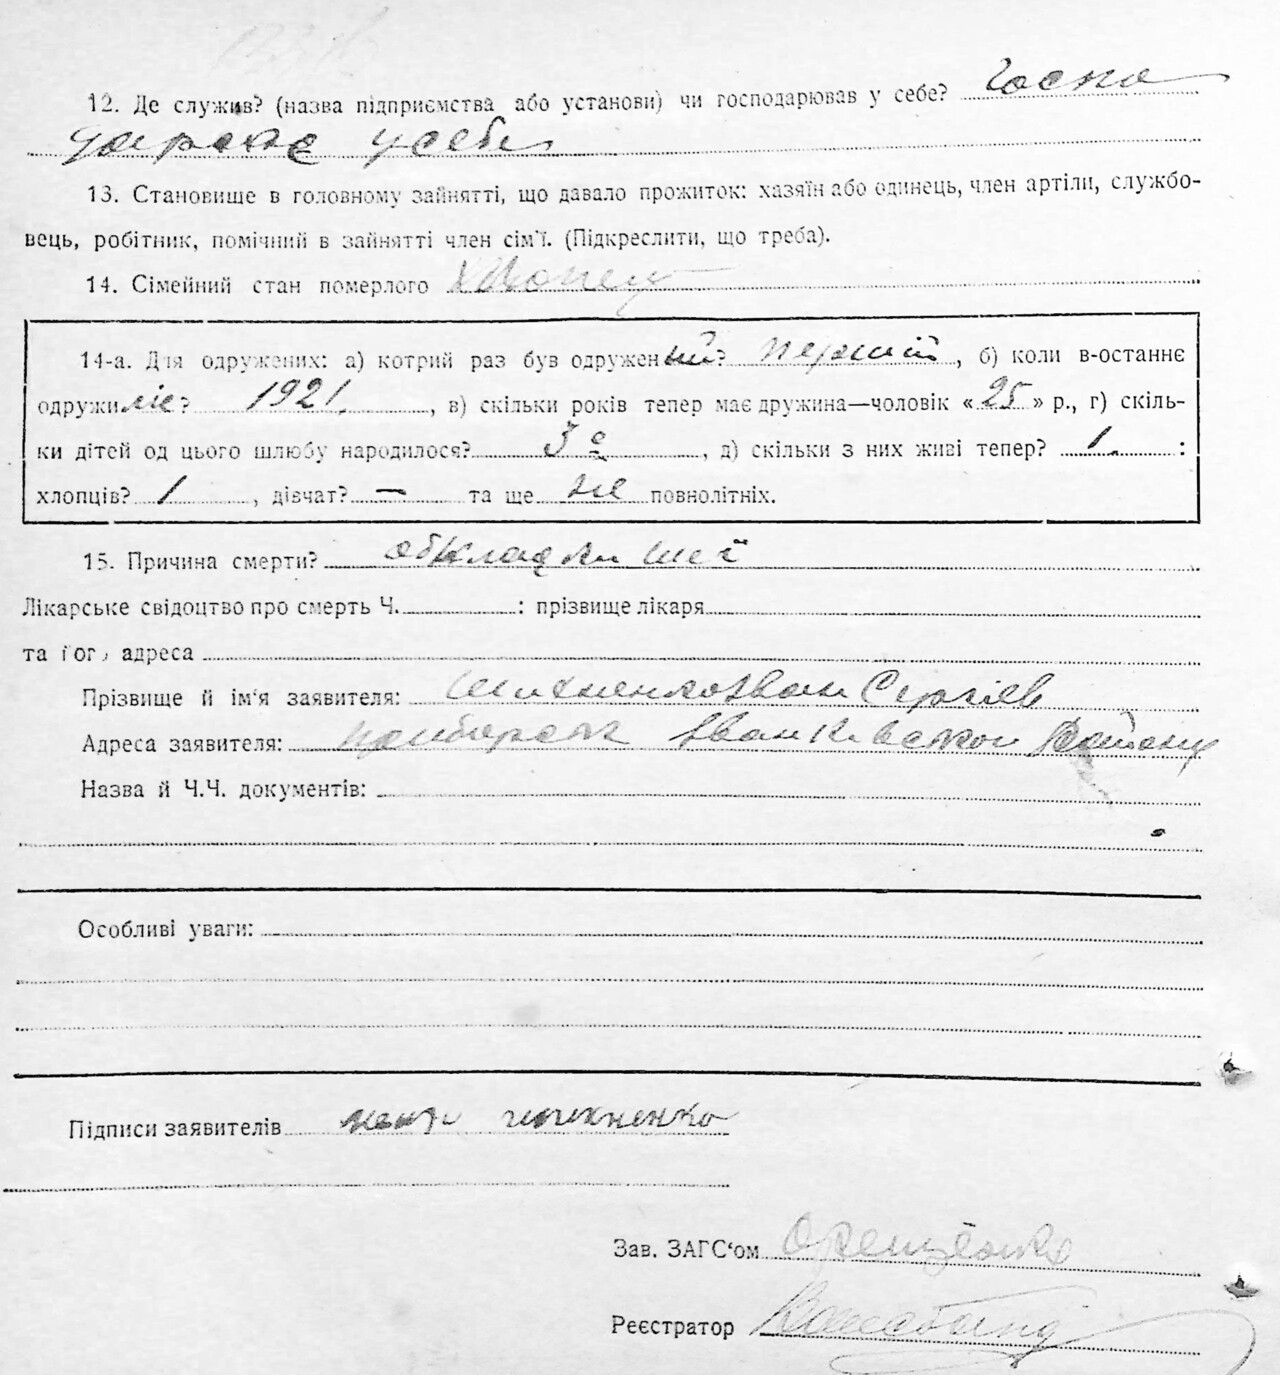 12. Де служив? (назва підприємства або установи) чи господарював у себе? Госпо
дарює у себе
13. Становище в головному зайнятті, що давало прожиток: хазяїн або одинець, член артіли, службо-
вець, робітник, помічний в зайнятті член сім'ї. (Підкреслити, що треба).
14. Сімейний стан померлого
14-а. Для одружених: а) котрий раз був одружений? перший, б) коли в-останнє
одружився? 1921, в) скільки років тепер має дружина—чоловік «25» р., г) скіль-
ки дітей од цього шлюбу народилося? 3є, д) скільки з них живі тепер? 1. :
хлопців? 1, дівчат? — та ще не повнолітніх.
15. Причина смерти? обкладки шиї
Лікарське свідоцтво про смерть Ч. : прізвище лікаря
та його адреса
Прізвище й ім'я заявителя: Шихненко Іван Сергіїв
Адреса заявителя: Іванківського Району
Назва й Ч.Ч. документів:
Особливі уваги:
Підписи заявителів шихненко
Зав. ЗАГС'ом
Реєстратор